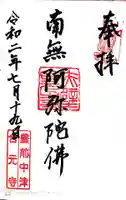 奉拝
南無阿弥陀佛
令和二年七月十九日
豊前中津
合元寺